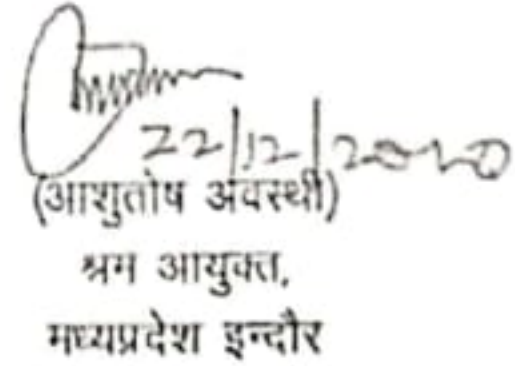 22/12/2020
(आशुतोष अवस्थी)
श्रम आयुक्त,
मध्यप्रदेश इन्दौर